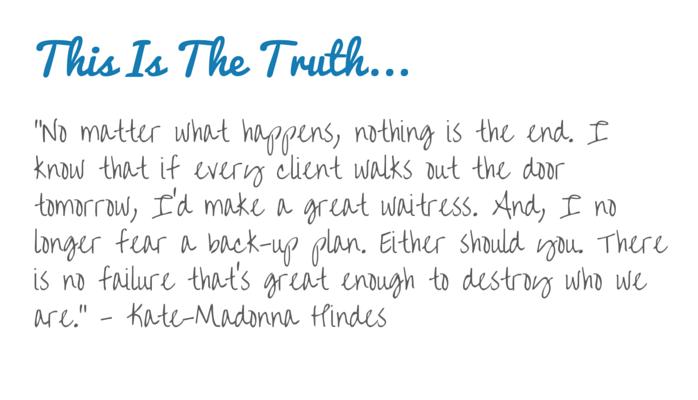 This Is The Truth...
"No matter what happens, nothing is the end. I
know that if every client walks out the door
tomorrow, I'd make a great waitress. And, I no
longer fear a back-up plan. Either should you. There
is no failure that's great enough to destroy who we
are." - Kate-Madonna Hindes